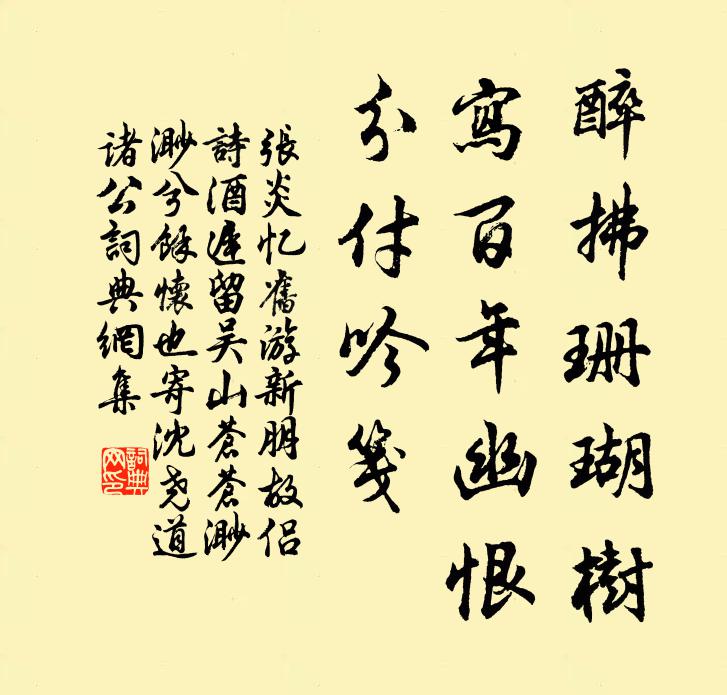 醉拂珊瑚樹
寫百年幽恨
分付吟箋
張炎忆舊游新朋故侣
詩酒遲留吴山蒼蒼渺
渺兮餘懷也寄沈尧道
诸公詞典網集
詞典
网印